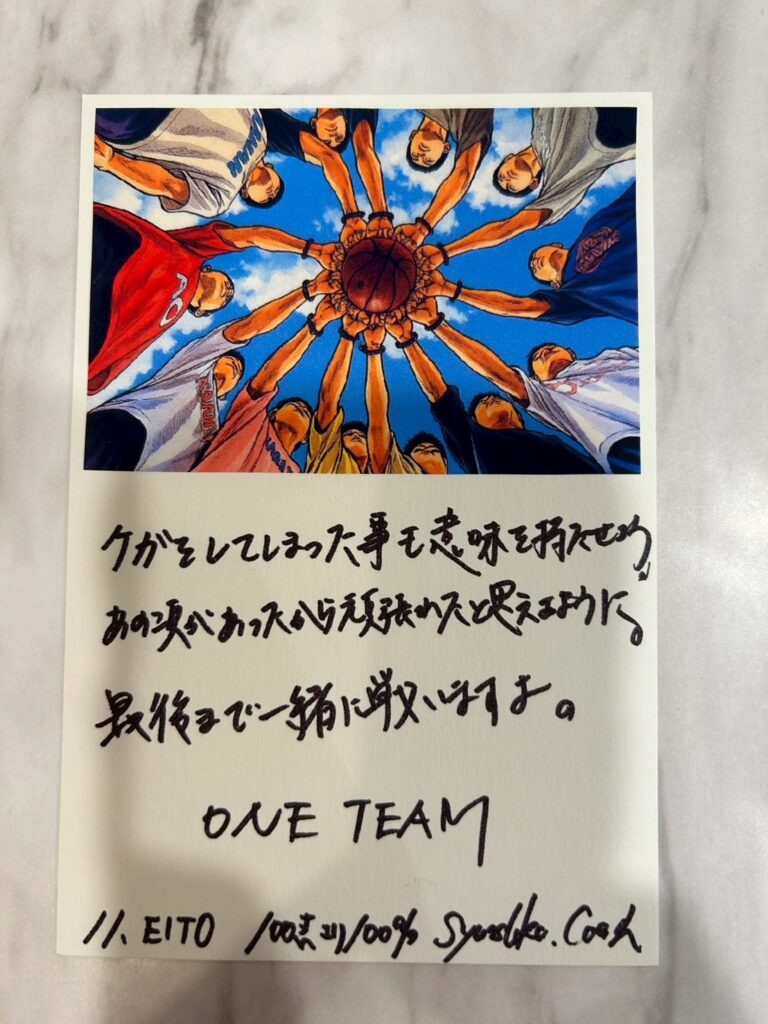 ケガをしてしまった事も意味を持たせよう
あの頃があったから頑張れたと思えるように。
最後まで一緒に戦いますよ。
ONE TEAM
11. EITO 100点より100% Coach